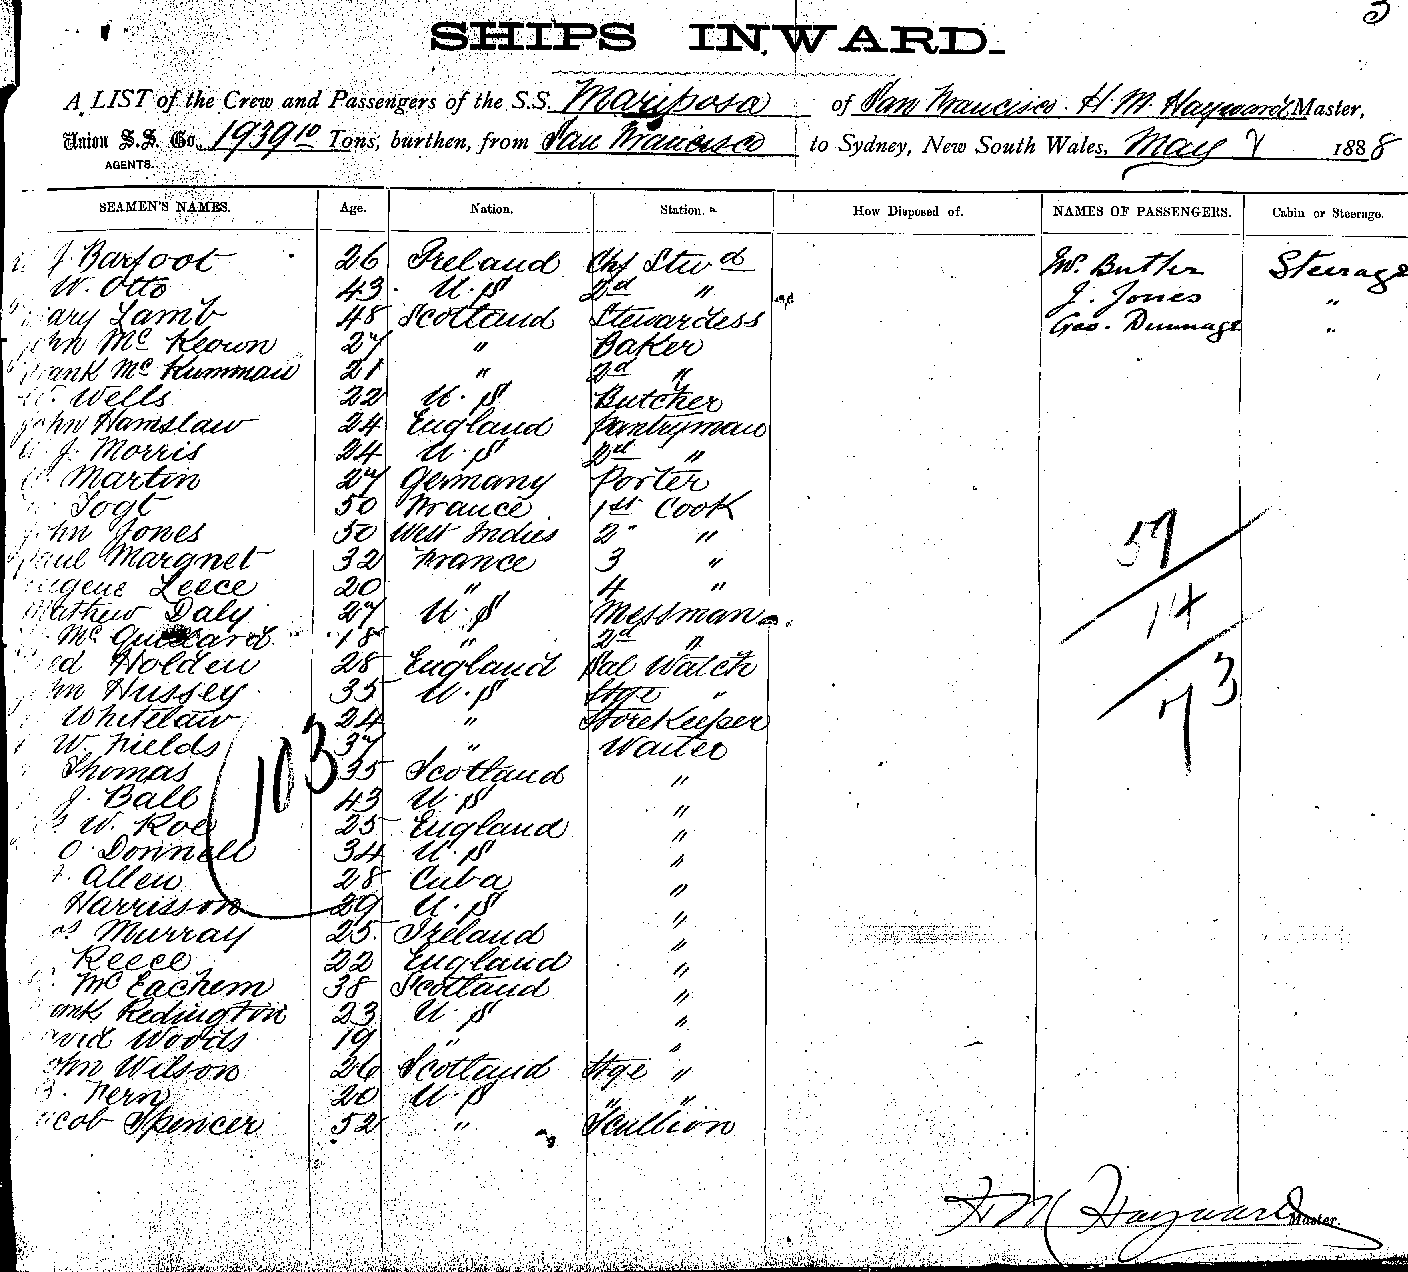 SHIPS INWARD.
A LIST of the Crew and Passengers of the S.S. Mariposa of San Francisco. H. M. Hayward Master,
Union S.S. Co. 1939 10 Tons, burthen, from San Francisco to Sydney, New South Wales, May 1888
AGENTS.
SEAMEN'S NAMES. Age. Nation. Station. How Disposed of. NAMES OF PASSENGERS. Cabin or Steerage.
J Barfoot 26 Ireland Chf Stwd W. Butler Steerage
W. Otto 43 U. S 2d " J. Jones "
ary Lamb 48 Scotland Stewardess Geo. Dunnage "
John Mc Keown 27 " Baker
rank Mc Kumman 21 " 2d "
Wells 22 U. S Butcher
John Hamslaw 24 England Pantryman
J. Morris 24 U. S 2nd "
Martin 27 Germany Porter
Togt 50 France 1st Cook
John Jones 50 West Indies 2" "
Paul Margnet 32 France 3 "
ugene Leece 20 " 4 "
Mathew Daly 27 U. S Messman
Mc 18 " 2d "
ed Holden 28 England Sal Watch
hn Hussey 35 U. S Stge "
Whitelaw 24 " StoreKeeper
W. Fields 37 " Waiter
Thomas 35 Scotland "
J. Ball 43 U. S "
W. Roe 25 England "
O. Donnell 34 U. S "
Allen 28 Cuba "
Harrisson 29 U. S "
os Murray 25 Ireland "
Reece 22 England "
Mc Eachem 38 Scotland "
ank Redington 23 U. S "
avid Woods 19 " "
ohn Wilson 26 Scotland Stge "
Fern 20 U. S " "
acob Spencer 52 " Scullion
103
59
14
73
H M Hayward Master.